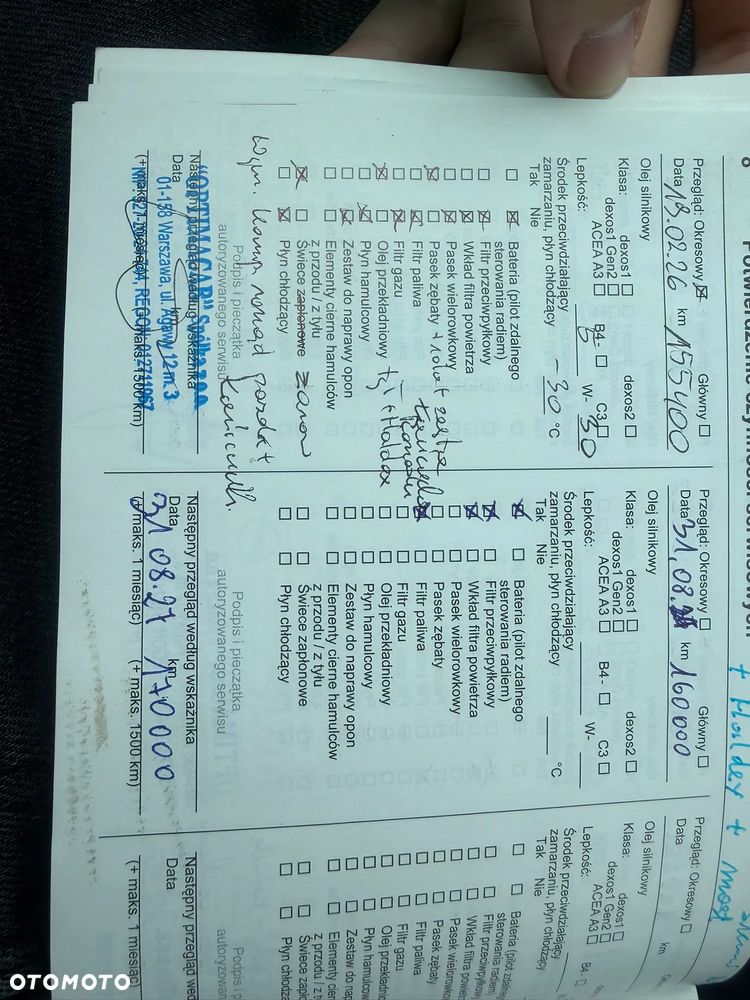 Przegląd: Okresowy Główny
Data 19.02.26 km 155400
Olej silnikowy
Klasa: dexos1 dexos2
dexos1 Gen2
ACEA A3 B4- C3
Lepkość: 5 W- 30
Środek przeciwdziałający
zamarzaniu, płyn chłodzący -30 °C
Tak Nie
Bateria (pilot zdalnego
sterowania radiem)
Filtr przeciwpyłkowy
Wkład filtra powietrza
Pasek wielorowkowy
Pasek zębaty + rolat
Filtr paliwa
Filtr gazu
Olej przekładniowy tył + Haldex
Płyn hamulcowy
Zestaw do naprawy opon
Elementy cierne hamulców
z przodu / z tyłu
Świece zapłonowe
Płyn chłodzący
Wym.
Podpis i pieczątka
autoryzowanego serwisu
"OPTIMACAR" Spółka zoo
01-158 Warszawa, ul. 12 m.3
REGON 012741067
Następny przegląd według wskaźnika
Data km
(+ maks. 1 miesiąc) (+ maks. 1500 km)
Przegląd: Okresowy Główny
Data 31.08. km 160000
Olej silnikowy
Klasa: dexos1 dexos2
dexos1 Gen2
ACEA A3 B4- C3
Lepkość: W-
Środek przeciwdziałający
zamarzaniu, płyn chłodzący °C
Tak Nie
Bateria (pilot zdalnego
sterowania radiem)
Filtr przeciwpyłkowy
Wkład filtra powietrza
Pasek wielorowkowy
Pasek zębaty
Filtr paliwa
Filtr gazu
Olej przekładniowy
Płyn hamulcowy
Zestaw do naprawy opon
Elementy cierne hamulców
z przodu / z tyłu
Świece zapłonowe
Płyn chłodzący
Podpis i pieczątka
autoryzowanego serwisu
Następny przegląd według wskaźnika
Data km
31 08.27 170000
(+ maks. 1 miesiąc) (+ maks. 1500 km)
+ Haldex + most
Przegląd: Okresowy
Data km
Olej silnikowy
Klasa: dexos1
dexos1 Gen2
ACEA A3 B4-
Lepkość:
Środek przeciwdziałający
zamarzaniu, płyn chłodzący
Tak Nie
Bateria (pilot zdalnego
sterowania radiem)
Filtr przeciwpyłkowy
Wkład filtra powie
Pasek wielorowkow
Pasek zębaty
Filtr paliwa
Filtr gazu
Olej przekładniow
Płyn hamulcow
Zestaw do na
Elementy cier
z przodu / z t
Świece z
Płyn chłodz
Podpis i
autoryzowan
Następny przegląd wed
Data
(+ maks. 1 miesiąc)
OTOMOTO